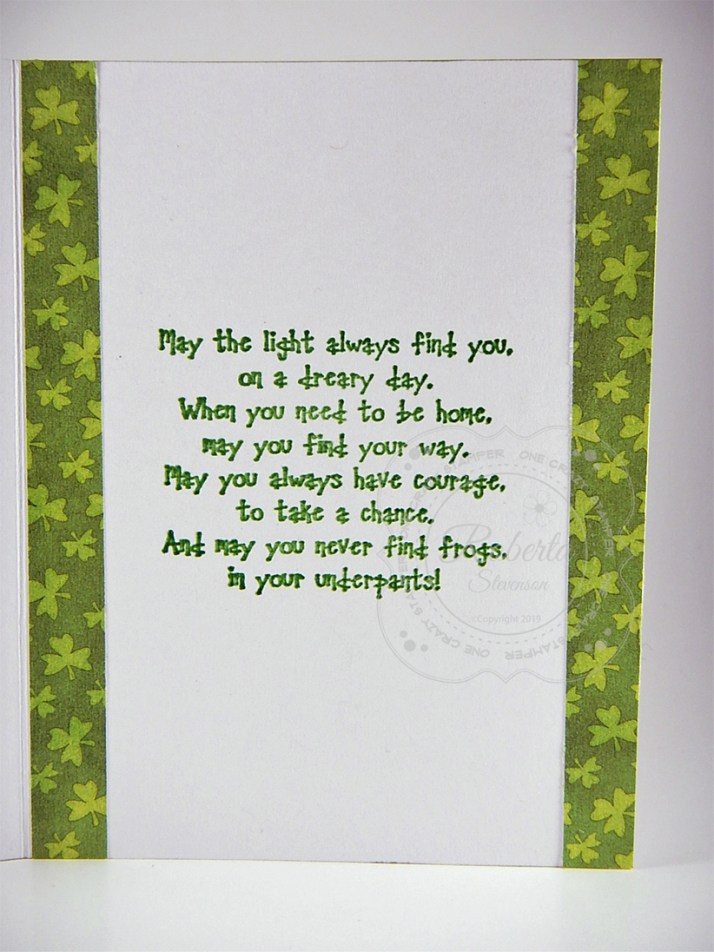 May the light always find you,
on a dreary day.
When you need to be home,
may you find your way.
May you always have courage,
to take a chance.
And may you never find frogs,
in your underpants!
ONE CRAZY STAMPER
Roberta
Stevenson
©Copyright 2019
ONE CRAZY STAMPER